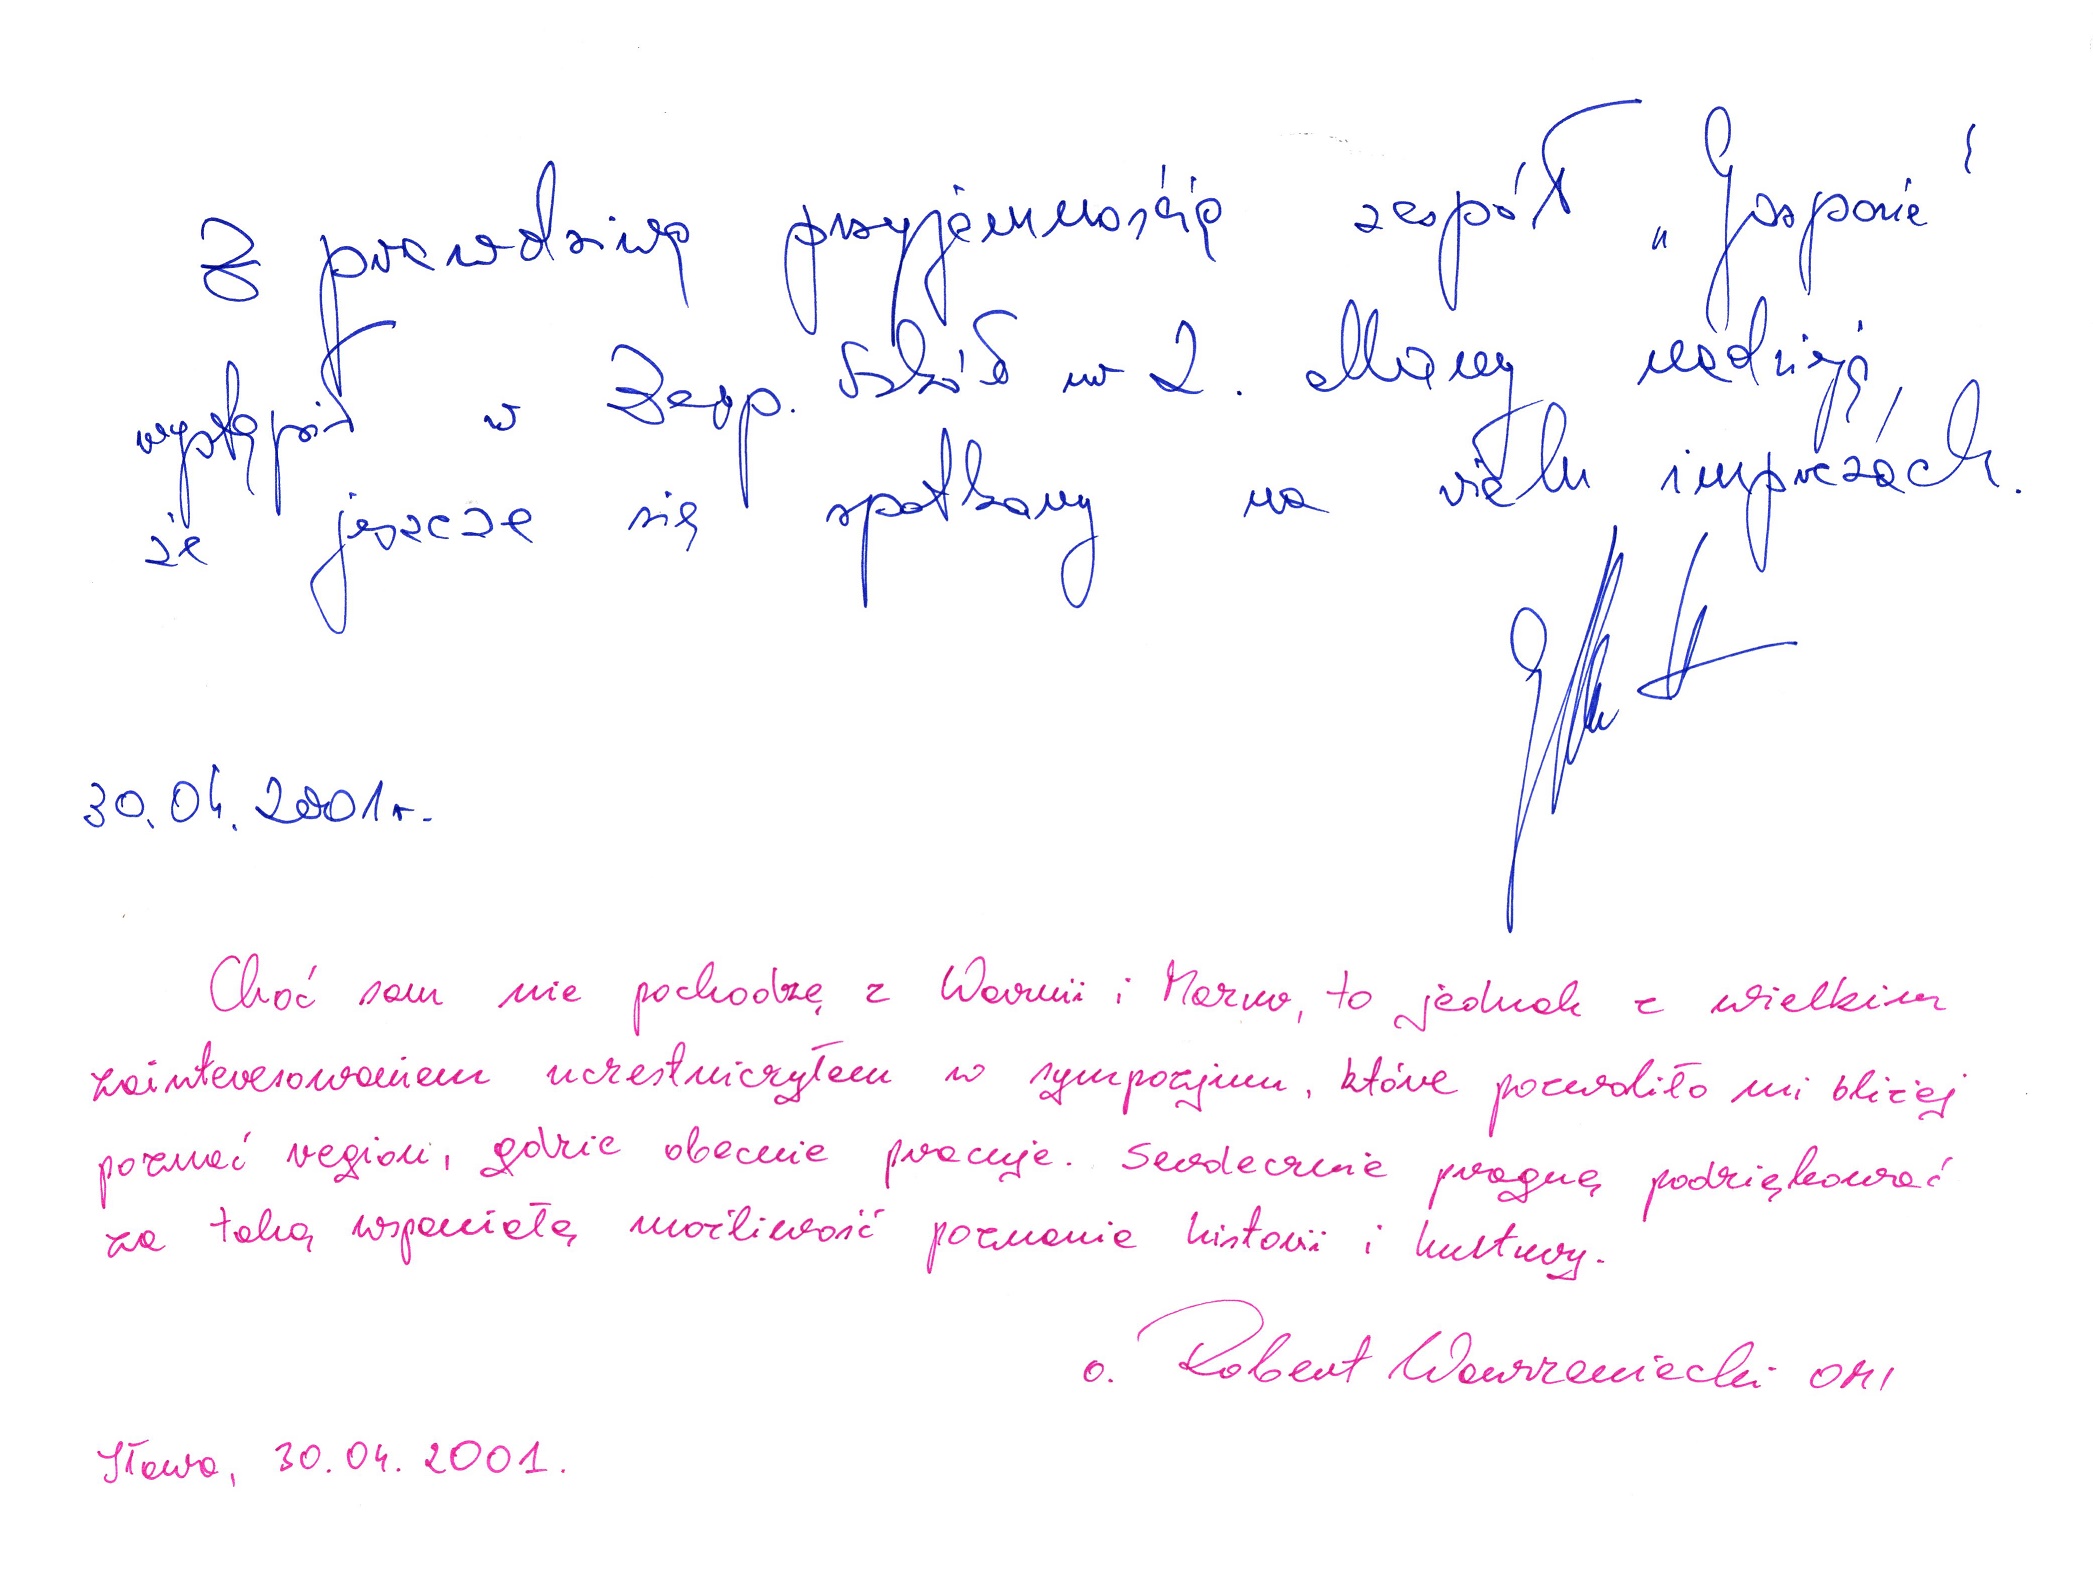 Z prawdziwą przyjemnością zespół „Gosponie"
wystąpił w Zesp. Szkół nr 2. Mamy nadzieję,
że jeszcze się spotkamy na wielu imprezach.
30.04.2001r.
Choć sam nie pochodzę z Warmii i Mazur, to jednak z wielkim
zainteresowaniem uczestniczyłem w sympozjum, które pozwoliło mi bliżej
poznać region, gdzie obecnie pracuje. Serdecznie pragnę podziękować
za taką wspaniałą możliwość poznania historii i kultury.
o. Robert Wawrzeniecki OMI
Iława, 30.04.2001.